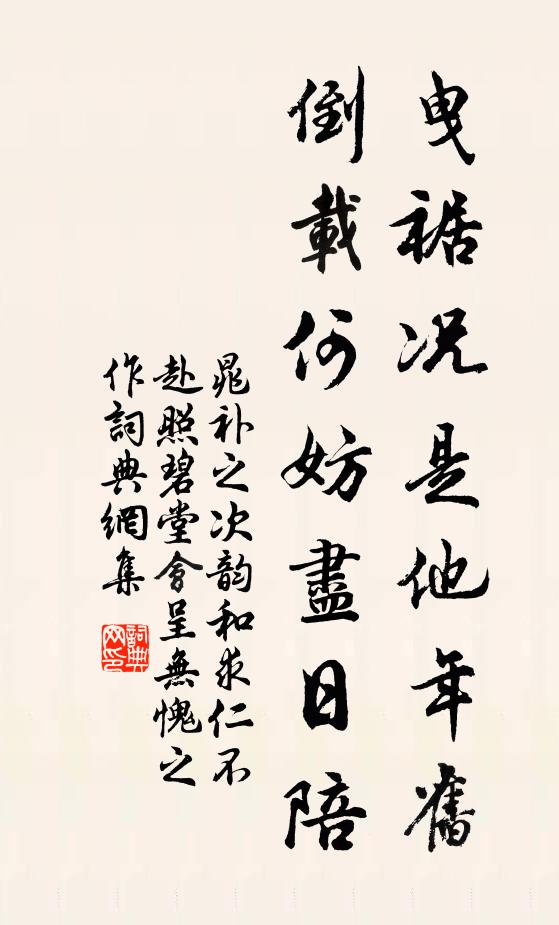 曳裾况是他年舊
倒載何妨盡日陪
晁補之次韵和求仁不
赴照碧堂會呈無愧之
作詞典網集
詞典網印